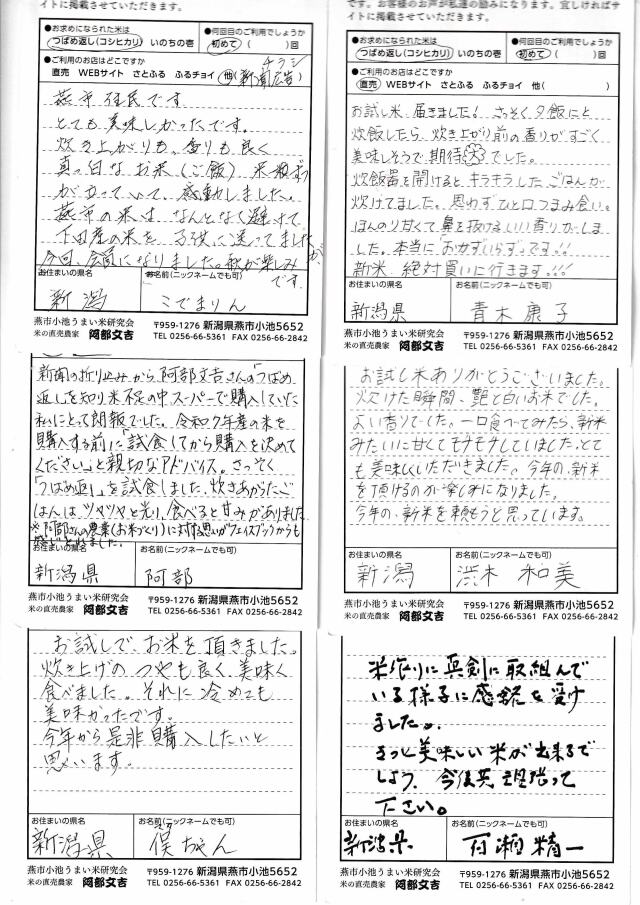 イトに掲載させていただきます。
●お求めになられた米は
つばめ返し(コシヒカリ) いのちの壱
●何回目のご利用でしょうか
初めて ( )回
●ご利用のお店はどこですか
チラシ
直売 WEBサイト さとふる ふるチョイ 他(新聞広告)
燕市住民です
とても美味しかったです。
炊き上がりも、香りも良く
真っ白なお米(ご飯) 米粒
が立っていて、感動しました。
燕市の米はなんとなく避けて
下田産の米を子供に送ってましたが
今回、広間になりました。秋が楽しみ
です。
お住まいの県名
新潟
お名前(ニックネームでも可)
こでまりん
燕市小池うまい米研究会
米の直売農家 阿部文吉
〒959-1276 新潟県燕市小池5652
TEL 0256-66-5361 FAX 0256-66-2842
です。お客様のお声が私達の励みになります。宜しければサ
イトに掲載させていただきます。
●お求めになられた米は
つばめ返し(コシヒカリ) いのちの壱
●何回目のご利用でしょうか
初めて ( )回
●ご利用のお店はどこですか
直売 WEBサイト さとふる ふるチョイ 他( )
お試し米、届きました! さっそく夕飯にと
炊飯したら、炊き上がり前の香りがすごく
美味しそうで、期待大でした。
炊飯器を開けると、キラキラしたごはんが
炊けてました。思わずひと口つまみ食い。
ほんのり甘くて鼻を抜けるいい香りがしま
した。本当に「おかずいらず」です!!!
新米、絶対買いに行きます!!!
お住まいの県名
新潟県
お名前(ニックネームでも可)
青木康子
〒959-1276 新潟県燕市小池5652
米の直売農家 阿部文吉
TEL 0256-66-5361 FAX 0256-66-2842
新聞の折り込みから、阿部文吉さんの「つばめ
返し」を知り米不足の中スーパーで購入していた
私にとって朗報でした。令和7年産の米を
購入する前に「試食してから購入を決めて
ください」と親切なアドバイス。さっそく
「つばめ返し」を試食しました、炊きあがったご
はんは、ツヤツヤと光り、食べると甘みがありました
※阿部さんの農業(お米づくり)に対する思いがフェイスブックからも
感じとれました。
お住まいの県名
新潟県
お名前(ニックネームでも可)
阿部
燕市小池うまい米研究会
米の直売農家 阿部文吉
〒959-1276 新潟県燕市小池5652
TEL 0256-66-5361 FAX 0256-66-2842
お試し米ありがとうございました。
炊けた瞬間、艶と白いお米でした。
よい香りでした。一口食べてみたら、新米
みたいに甘くてモチモチしていました、とて
も美味しくいただきました。今年の、新米
を頂けるのが楽しみになりました。
今年の、新米を頼もうと思っています。
お住まいの県名
新潟
お名前(ニックネームでも可)
渋木 和美
燕市小池うまい米研究会
米の直売農家 阿部文吉
〒959-1276 新潟県燕市小池5652
TEL 0256-66-5361 FAX 0256-66-2842
お試しで、お米を頂きました。
炊き上げのつやも良く、美味く
食べました。それに冷めても
美味かったです。
今年から是非購入したいと
思います。
お住まいの県名
新潟県
お名前(ニックネームでも可)
僕ちゃん
燕市小池うまい米研究会
米の直売農家 阿部文吉
〒959-1276 新潟県燕市小池5652
TEL 0256-66-5361 FAX 0256-66-2842
米作りに真剣に取組んで
いる様子に感銘を受け
ました。
きっと美味しい米が出来るで
しょう、今後共頑張って
下さい。
お住まいの県名
新潟県
お名前(ニックネームでも可)
石瀬精一
燕市小池うまい米研究会
米の直売農家 阿部文吉
〒959-1276 新潟県燕市小池5652
TEL 0256-66-5361 FAX 0256-66-2842